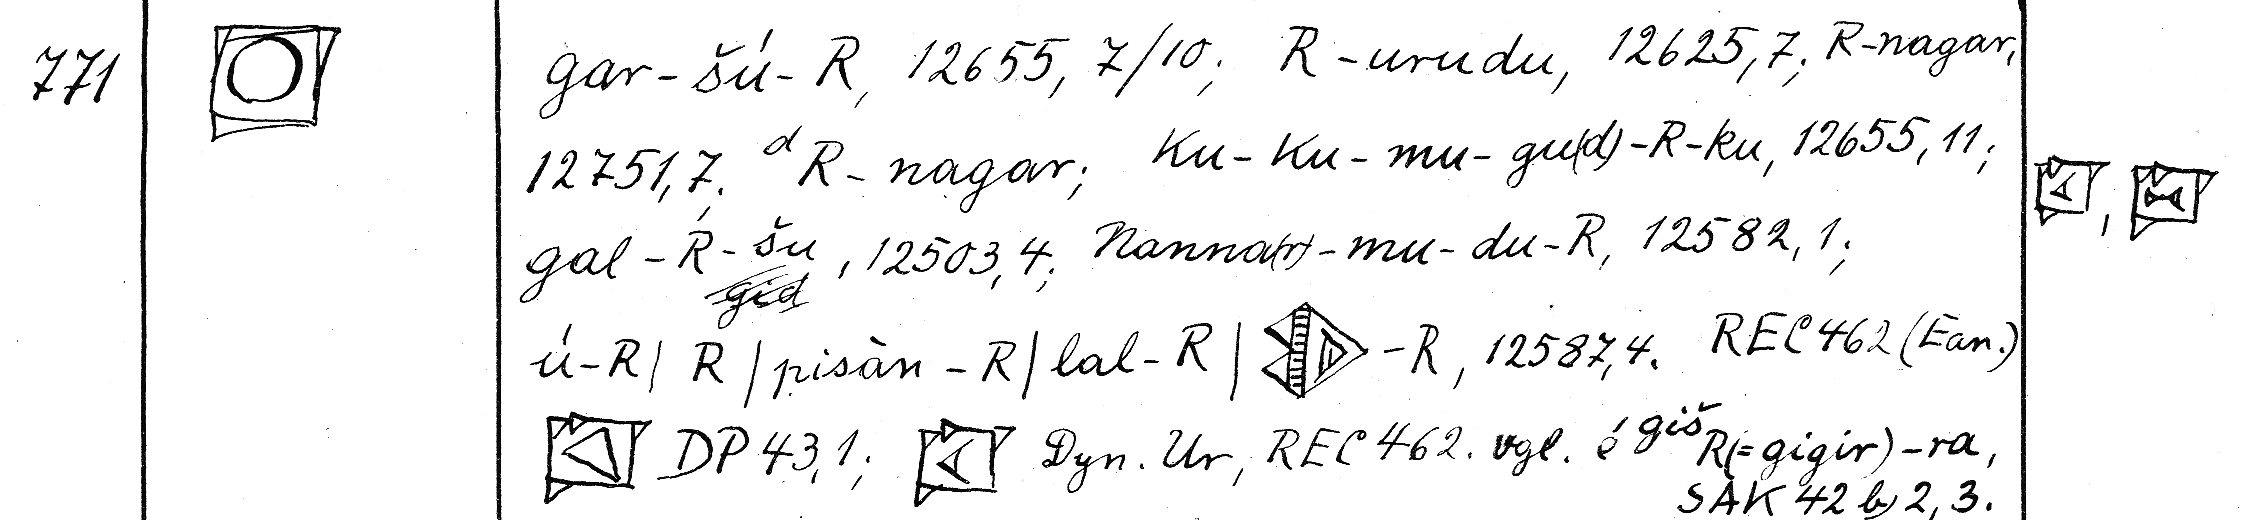 771 gar-šú-R, 12655, 7/10; R-urudu, 12625,7; R-nagar,
12751,7. ᵈR-nagar; Ku-Ku-mu-gu(d)-R-ku, 12655,11;
gal-R-šu, 12503,4; Nanna(r)-mu-du-R, 12582,1;
ú-R/ R/pisàn-R/lal-R/ -R, 12587,4. REC 462 (Ean.)
DP 43,1; Dyn. Ur, REC 462. vgl. é ᵍⁱˢ̌R(=gigir)-ra,
SAK 42 b) 2, 3.